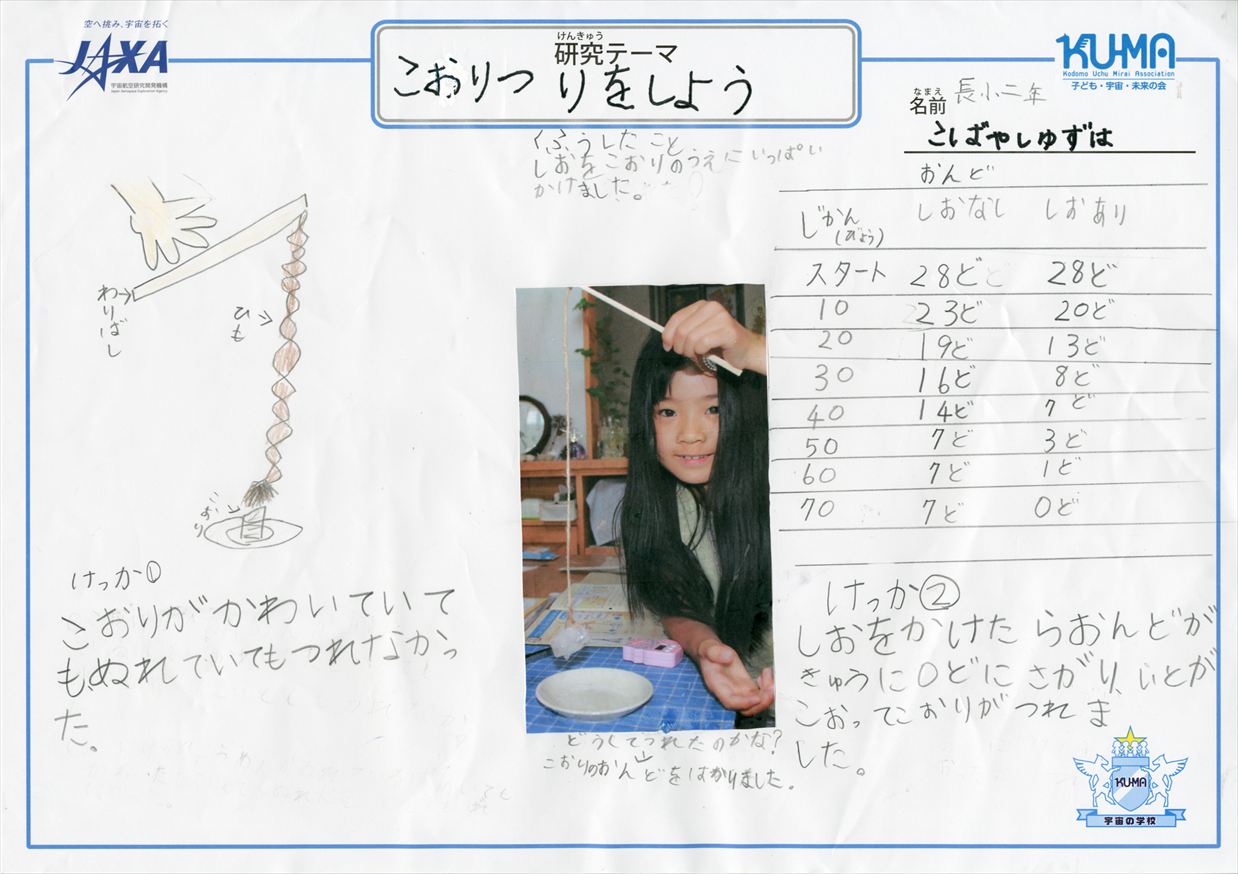 空へ挑み、宇宙を拓く
JAXA
宇宙航空研究開発機構
Japan Aerospace Exploration Agency
けんきゅう
研究テーマ
こおりつりをしよう
KU-MA
Kodomo Uchu Mirai Association
子ども・宇宙・未来の会
なまえ
名前
長小二年
こばやしゆずは
くふうしたこと
しおをこおりのうえにいっぱい
かけました。
わりばし
ひも
けっか①
こおりがかわいていて
もぬれていてもつれなかっ
た。
どうしてつれたのかな?
↓
こおりのおんどをはかりました。
おんど
じかん(びょう) しおなし しおあり
スタート 28ど 28ど
10 23ど 20ど
20 19ど 13ど
30 16ど 8ど
40 14ど 7ど
50 7ど 3ど
60 7ど 1ど
70 7ど 0ど
けっか②
しおをかけたらおんどが
きゅうに0どにさがり、いとが
こおってこおりがつれま
した。
KU-MA
宇宙の学校